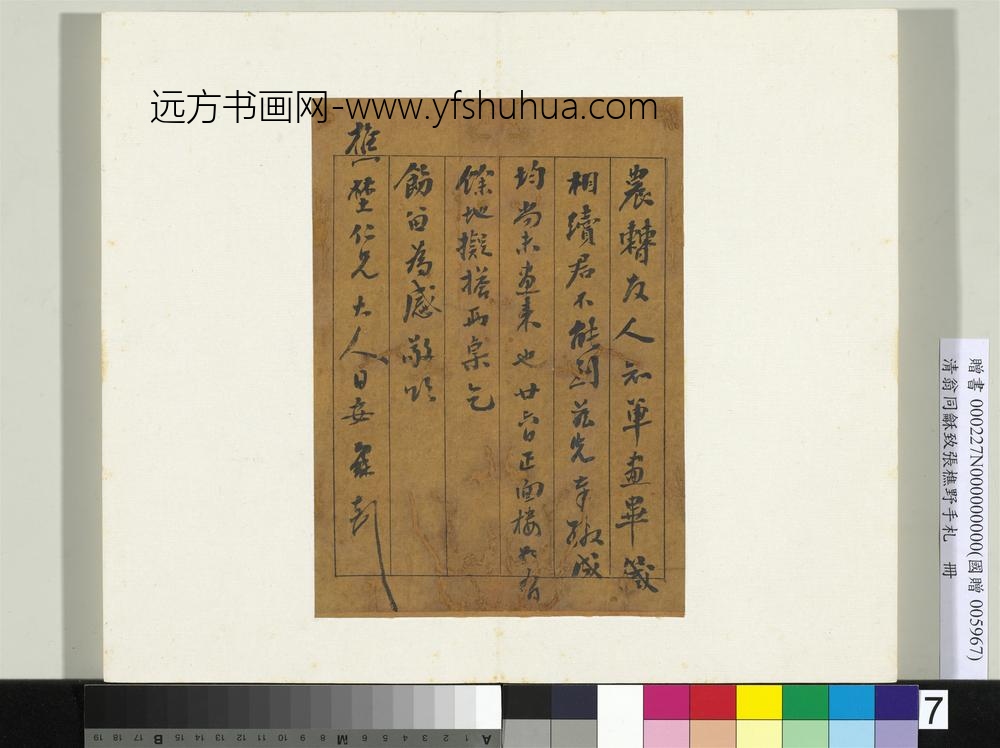 远方书画网-www.yfshuhua.com
農轉友人知單畫畢箋
相續君不能到茲先奉繳咸
均尚未畫來也廿六日正面樓如有
餘地擬搭兩桌乞
飭留為感敬頌
樵埜仁兄大人日安
贈書 000227N000000000(國贈 005967)
清翁同龢致張樵野手札 冊
7
19 18 17 16 15 B 14 13 12 11 10 9 8 M 7 6 5 4 3 2 1 A